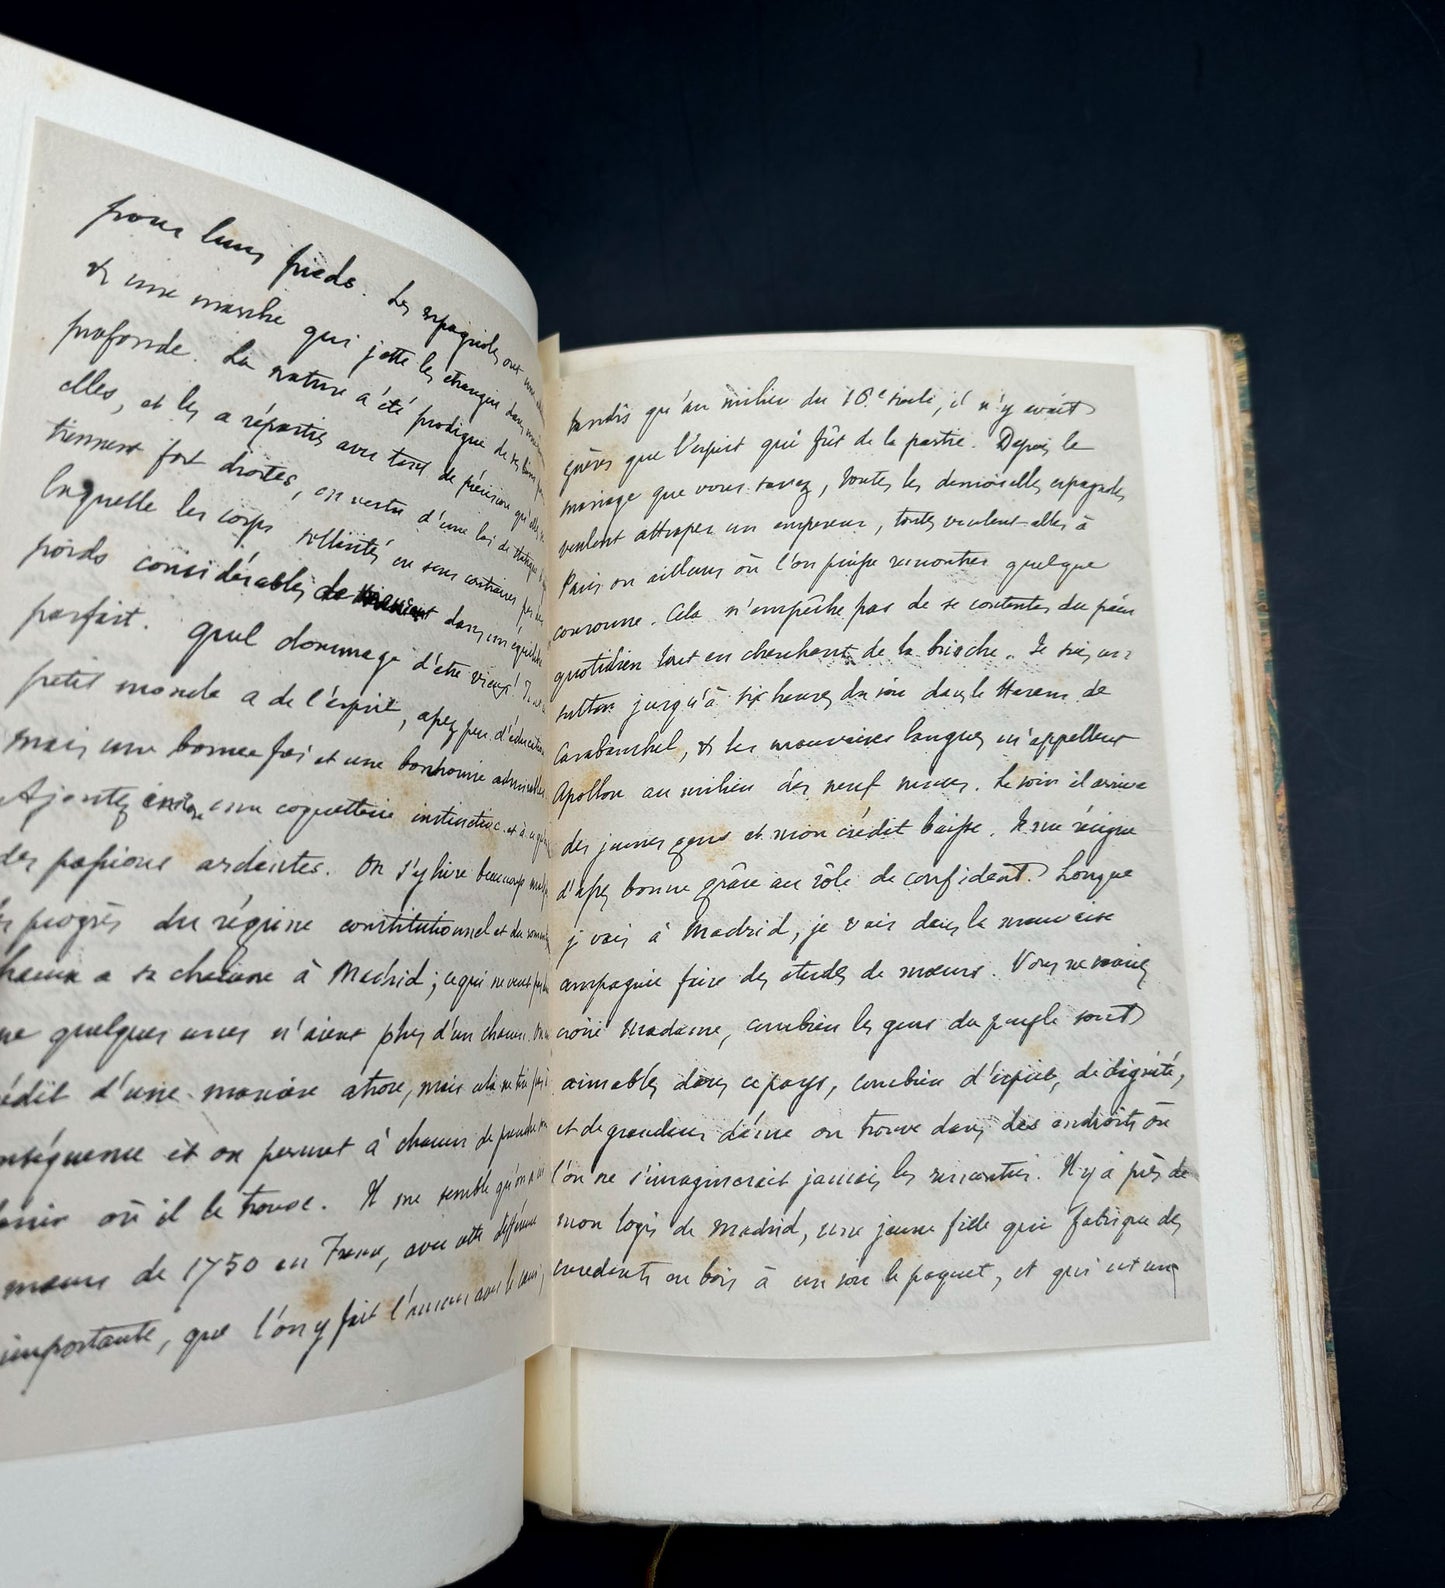 pour leurs pieds. Les espagnoles ont
& une marche qui jette les étrangers dans une
profonde. La nature a été prodigue de ses
elles, et les a réparties avec tant de précision qu'elles
tiennent fort droites, en vertu d'une loi de
laquelle les corps sollicités en sens contraires par des
poids considérables dans un équilibre
parfait. Quel dommage d'être vieux!
petit monde a de l'esprit, assez peu d'éducation
mais une bonne foi et une bonhomie admirables.
Ajoutez une coquetterie instinctive et
des passions ardentes. On s'y livre beaucoup
progrès du régime constitutionnel et du
a sa chacune à Madrid; ce qui ne veut pas
que quelques unes n'aient plus d'un chacun. On
édit d'une manière atroce, mais cela ne tire pas à
conséquence et on permet à chacun de prendre son
où il le trouve. Il me semble qu'on
moeurs de 1750 en France, avec cette différence
importante, que l'on y fait l'amour avec le
tandis qu'au milieu du 18e siecle, il n'y avait
guères que l'esprit qui fût de la partie. Depuis le
mariage que vous savez, toutes les demoiselles espagnoles
veulent attraper un empereur, toutes veulent aller à
Paris ou ailleurs où l'on puisse rencontrer quelque
couronne. Cela n'empêche pas de se contenter du pain
quotidien tout en cherchant de la brioche. Je suis un
sultan jusqu'à six heures du soir dans le Harem de
Carabanchel, & les mauvaises langues m'appellent
Apollon au milieu des neuf muses. Le soir il arrive
des jeunes gens et mon crédit baisse. Je me résigne
d'assez bonne grâce au rôle de confident. Lorsque
je vais à Madrid, je vais dans la mauvaise
compagnie faire des etudes de moeurs. Vous ne sauriez
croire Madame, combien les gens du peuple sont
aimables dans ce pays, combien d'esprit, de dignité,
et de grandeur d'âme on trouve dans des endroits où
l'on ne s'imaginerait jamais les rencontrer. Il y a près de
mon logis de Madrid, une jeune fille qui fabrique des
curedents en bois à un sou le paquet, et qui est une